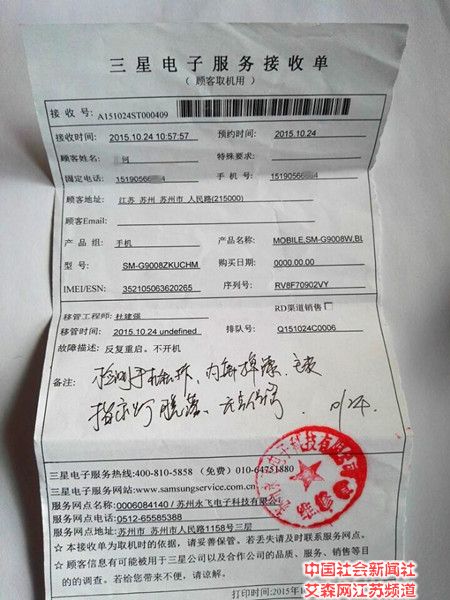 三星电子服务接收单
（ 顾客取机用 ）
接 收 号: A151024ST000409
接收时间: 2015.10.24 10:57:57 预约时间: 2015.10.24
顾客姓名: 何 特殊要求:
固定电话: 15190566 4 手 机 号: 15190566 4
顾客地址: 江苏 苏州 苏州市 人民路(215000)
顾客Email:
产 品 组: 手机 产品名称: MOBILE,SM-G9008W,BL
型 号: SM-G9008ZKUCHM 购买日期: 0000.00.00
IMEI/ESN: 352105063620265 序列号: RV8F70902VY
移管工程师: 杜建强 RD渠道销售
移管时间: 2015.10.24 undefined 排队号: Q151024C0006
故障描述: 反复重启。不开机
备注: 检测手机拆, 内部掉漆、
指示灯脱落、 10/24.
三星电子服务热线:400-810-5858 （免费）010-64751880
三星电子服务网站:www.samsungservice.com.cn
服务网点名称:0006084140 / 苏州永飞电子科技有限公
服务网点电话:0512-65585388
服务网点地址:苏州市 苏州市人民路1158号三层
☆ 本接收单为取机时的依据，请妥善保管。若丢失请及时联系服务网点。
☆ 顾客信息有可能被用于三星公司以及合作公司的品质、服务、销售等目
的的调查。若给您带来不便，请谅解。
打印时间:2015年1
中国社会新闻社
艾森网江苏频道